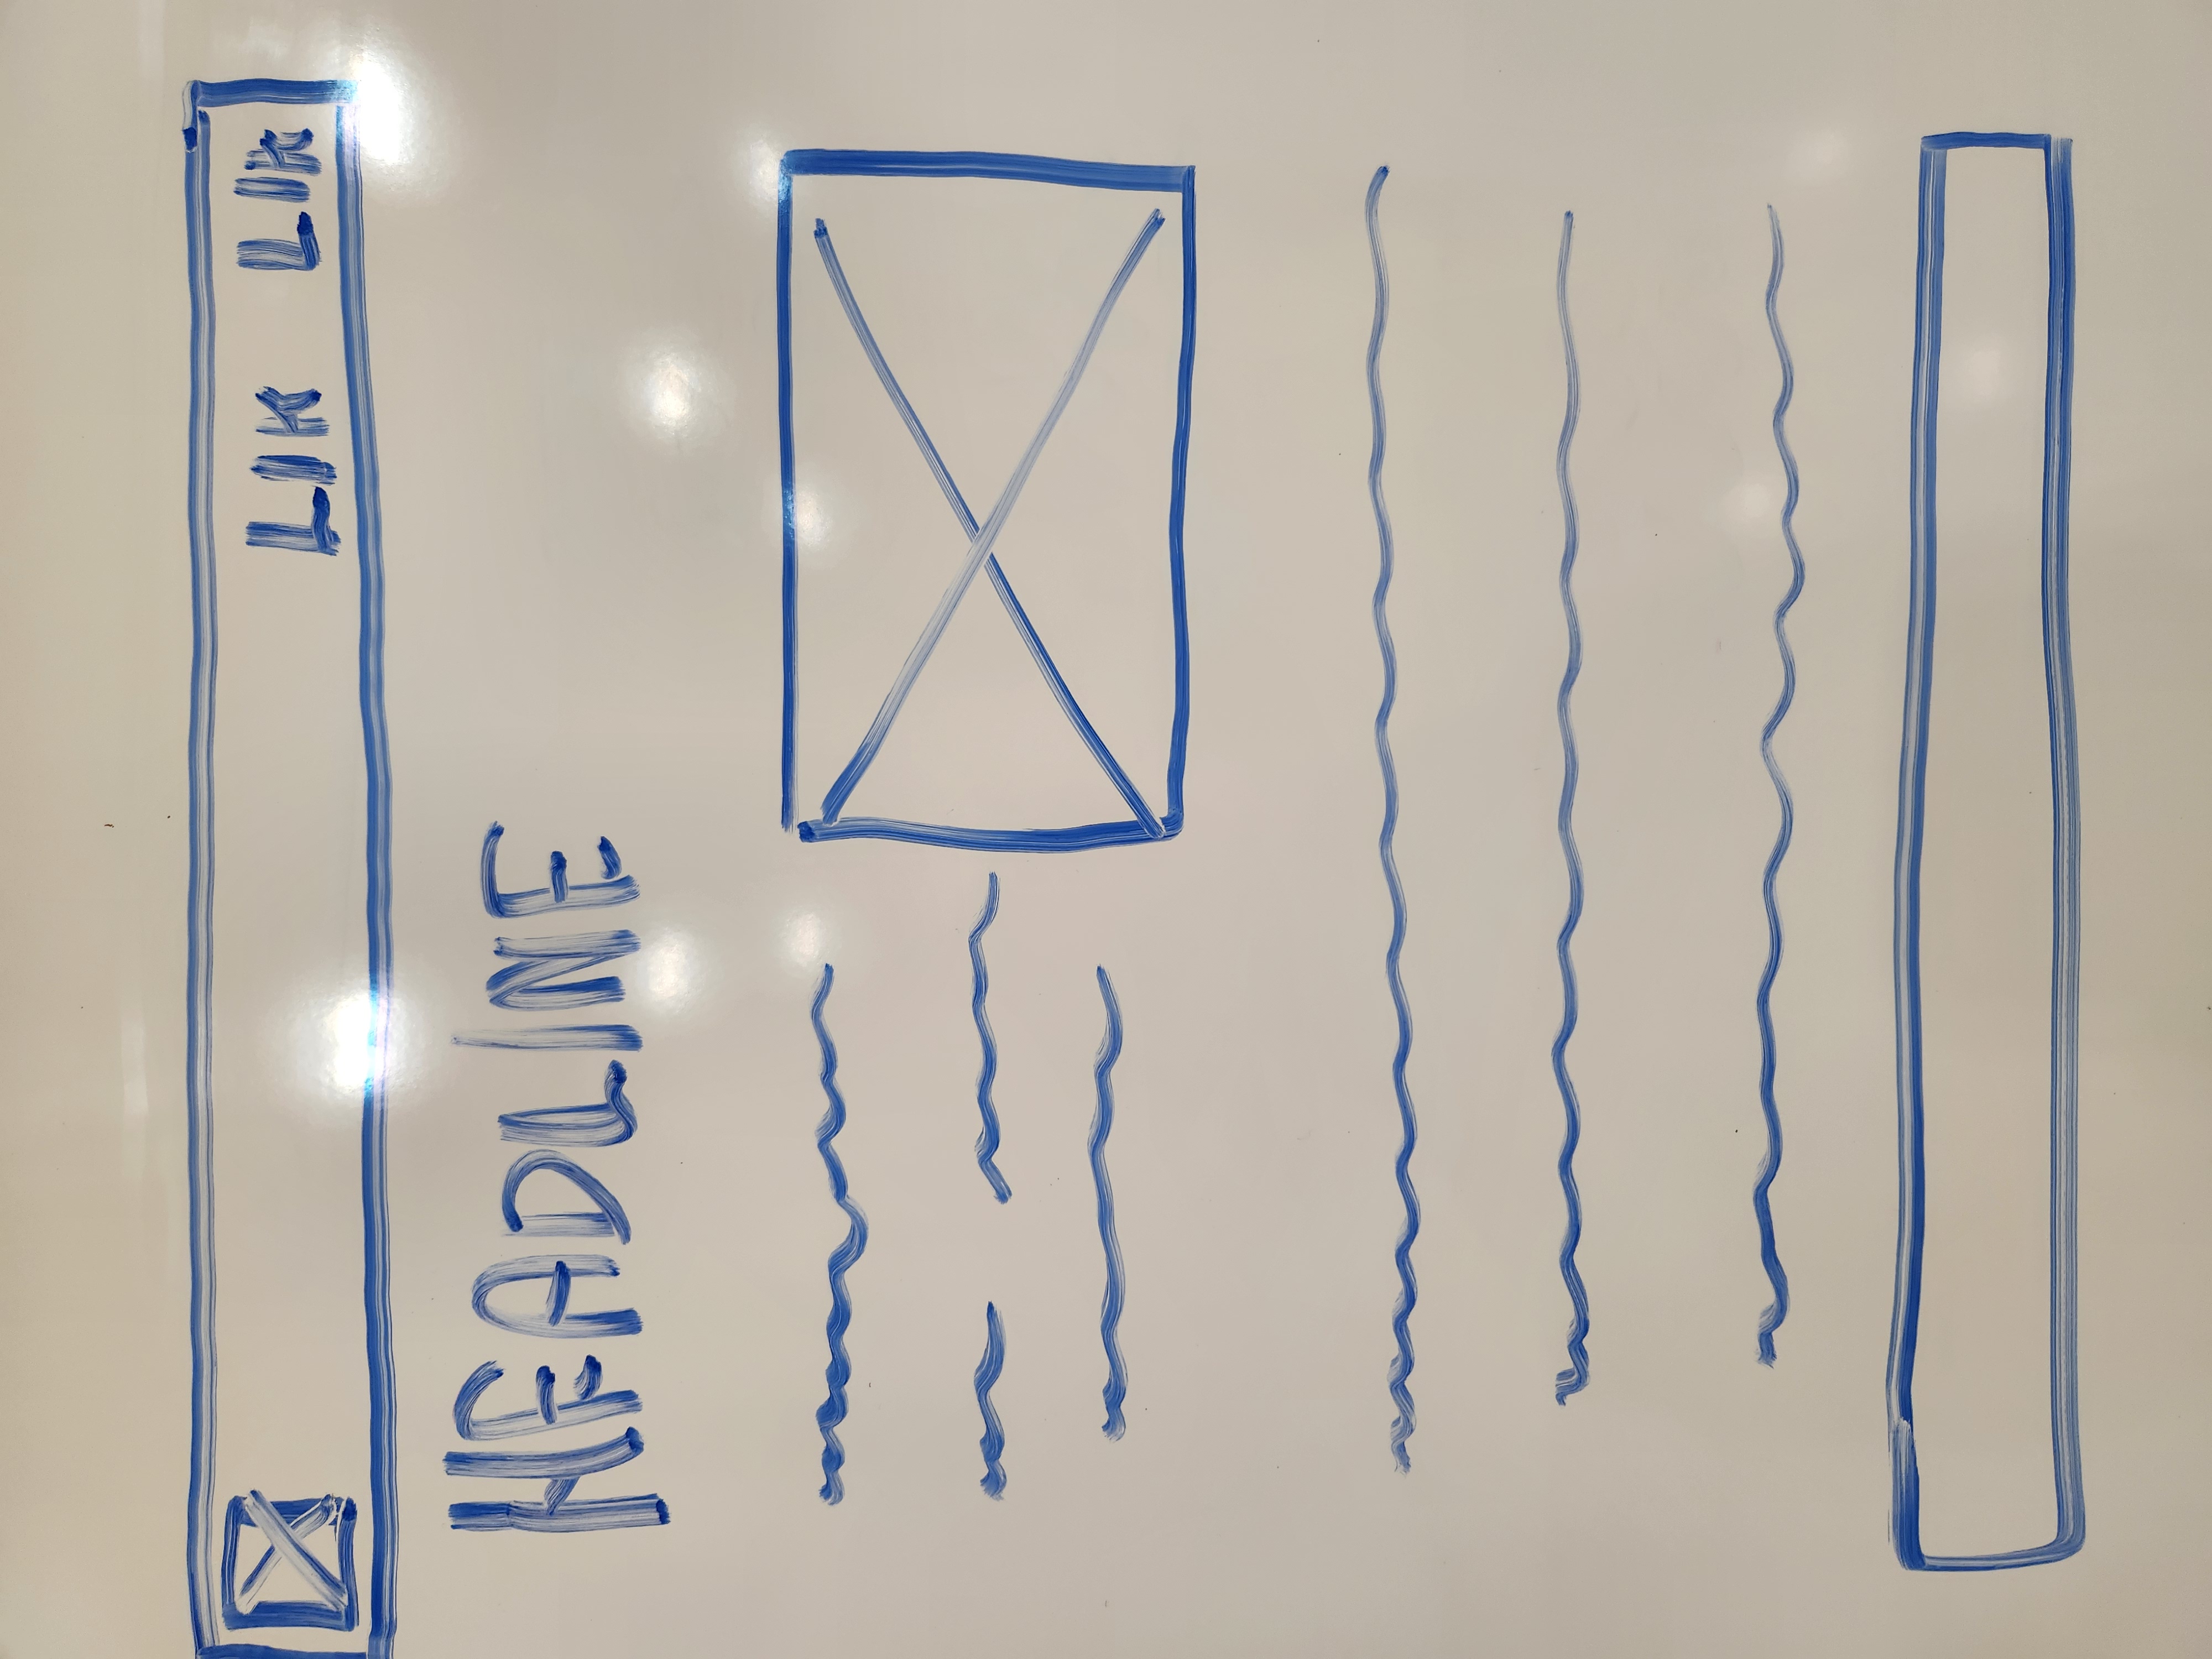 LIK LIK
HEADLINE